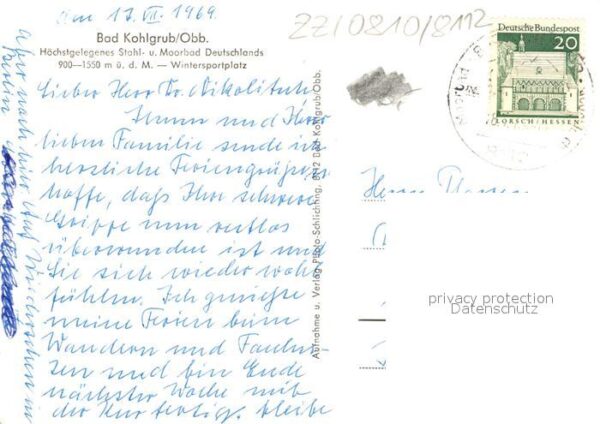 am 17. VII. 1969
Bad Kohlgrub/Obb.
Höchstgelegenes Stahl- u. Moorbad Deutschlands
900—1550 m ü. d. M. — Wintersportplatz
Lieber Herr Dr. Nikolitsch
Ihnen und Ihrer
lieben Familie sende ich
herzliche Feriengrüsse
hoffe, daß Ihre schwere
Grippe nun restlos
überwunden ist und
Sie sich wieder wohl
fühlen. Ich genieße
meine Ferien beim
Wandern und
und bin Ende
nächster Woche mit
der Kur fertig, bleibe
aber noch bis Auf Wiedersehen in
Berlin
Aufnahme u. Verlag Photo-Schlichting, 8112 Bad Kohlgrub/Obb.
ZZ/0810/8112
Deutsche Bundespost
20
LORSCH/HESSEN
Herrn
privacy protection
Datenschutz